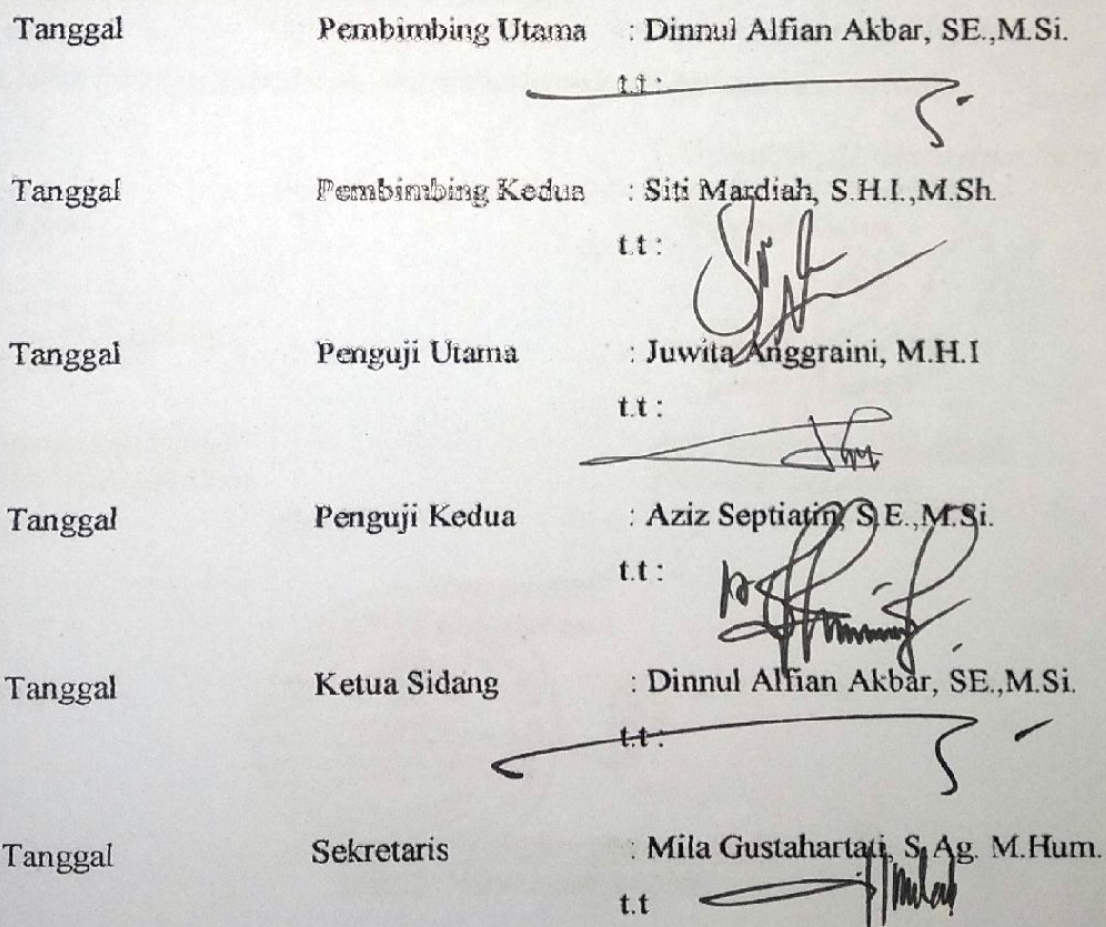 Tanggal Pembimbing Utama : Dinnul Alfian Akbar, SE.,M.Si.
t.t :
Tanggal Pembimbing Kedua : Siti Mardiah, S.H.I.,M.Sh.
t.t :
Tanggal Penguji Utama : Juwita Anggraini, M.H.I
t.t :
Tanggal Penguji Kedua : Aziz Septiatin, S.E.,M.Si.
t.t :
Tanggal Ketua Sidang : Dinnul Alfian Akbar, SE.,M.Si.
t.t :
Tanggal Sekretaris : Mila Gustahartati, S.Ag. M.Hum.
t.t